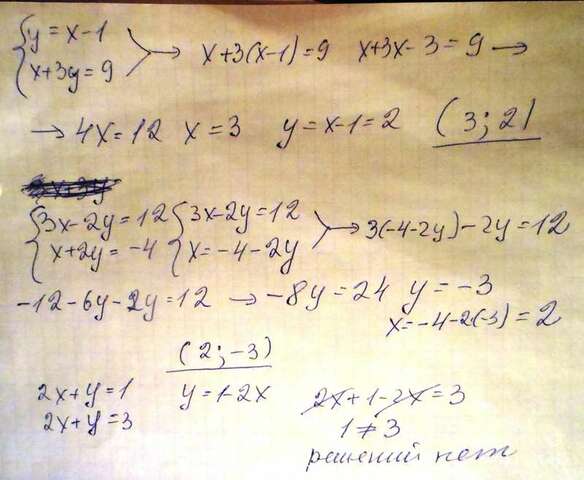 {y = x-1
x+3y=9 → x+3(x-1)=9 x+3x-3=9 →
→ 4x=12 x=3 y=x-1=2 (3; 2)
{3x-2y=12 {3x-2y=12
x+2y=-4 x=-4-2y → 3(-4-2y)-2y=12
-12-6y-2y=12 → -8y=24 y=-3
x=-4-2(-3)=2
(2;-3)
2x+y=1 y=1-2x 2x+1-2x=3
2x+y=3 1≠3
решений нет